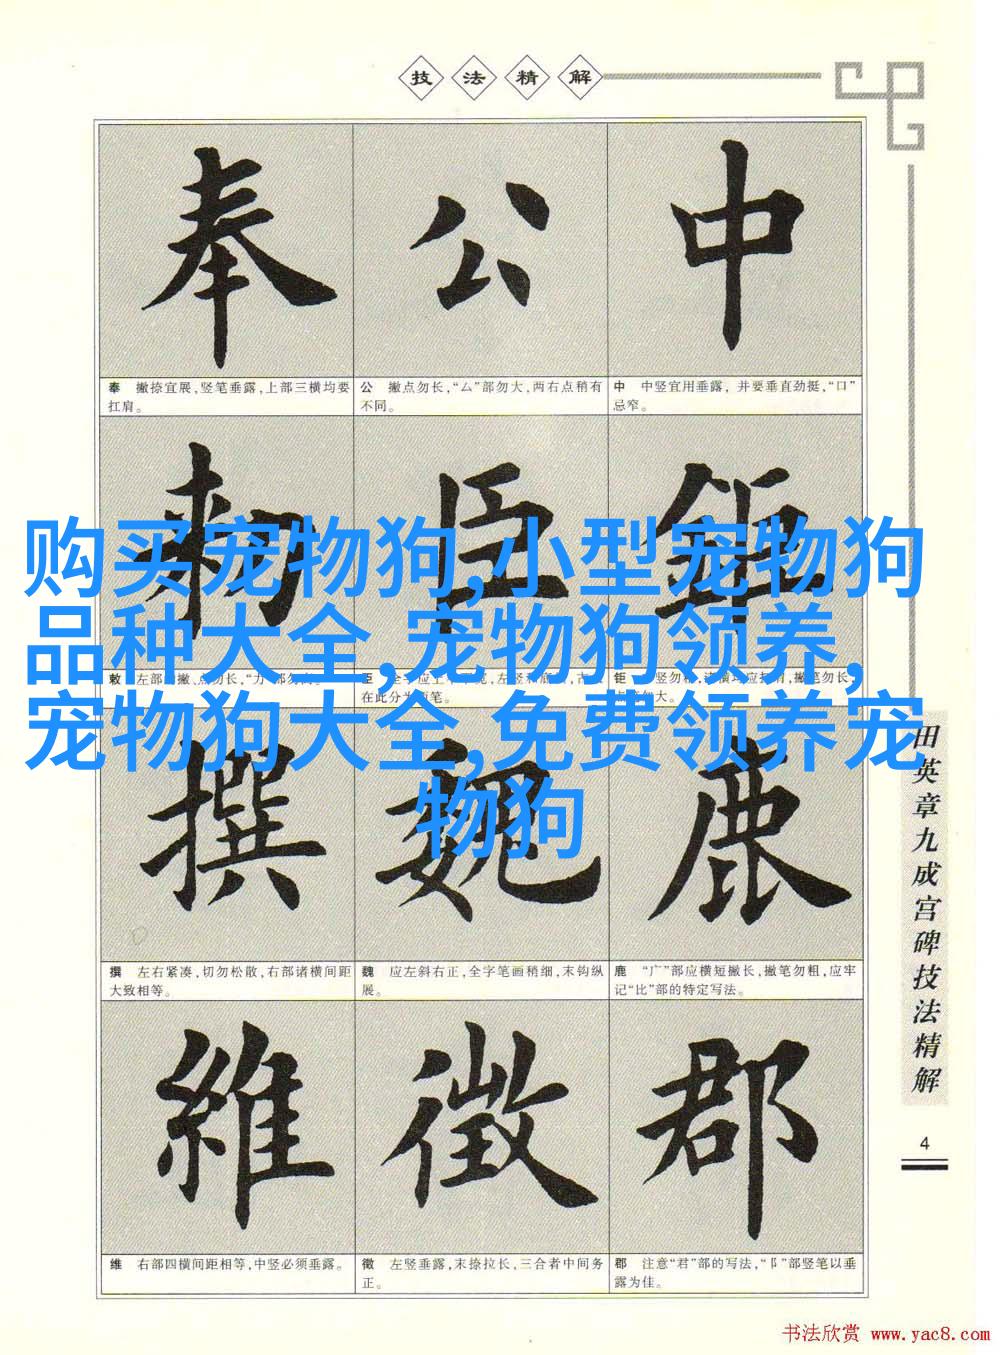 技法精解
奉 公 中
奉 撇捺宜展,竖笔垂露,上部三横均要
扛肩。
公 撇点勿长,“厶”部勿大,两右点稍有
不同。
中 中竖宜用垂露,并要垂直劲挺,“口”
忌窄。
购买宠物狗,小型宠物狗
品种大全,宠物狗领养,
宠物狗大全,免费领养宠
物狗
敕 臣 钜
在此分为两笔。
撰 魏 鹿
撰 左右紧凑,切勿松散,右部诸横间距
大致相等。
魏 应左斜右正,全字笔画稍细,末钩纵
展。
鹿 “广”部应横短撇长,撇笔勿粗,应牢
记“比”部的特定写法。
維 徵 郡
维 右部四横间距相等,中竖必须垂露。
徵 左竖垂露,末捺拉长,三合者中间务
正。
郡 注意“君”部的写法,“阝”部竖笔以垂
露为佳。
田英章九成宫碑技法精解
4
书法欣赏 www.yac8.com